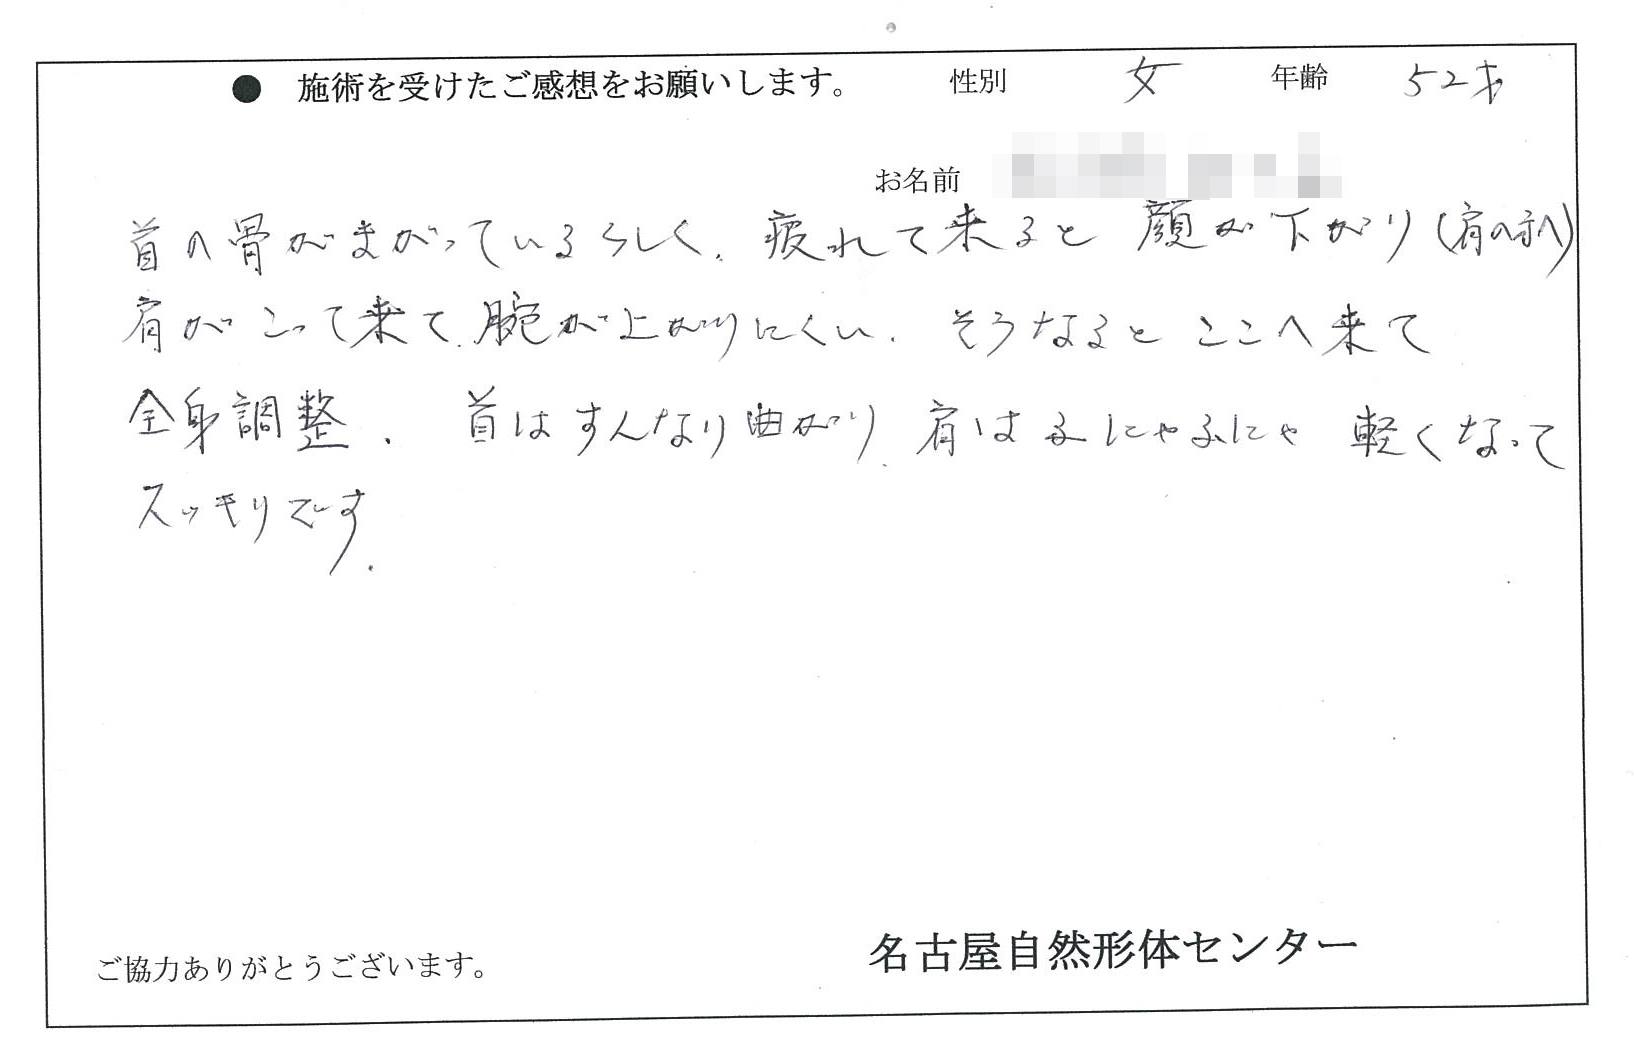 ● 施術を受けたご感想をお願いします。 性別 女 年齢 52才
お名前
首の骨がまがっているらしく、疲れて来ると 顔が下がり(肩の方へ)
肩がこって来て、腕が上がりにくい。そうなるとここへ来て
全身調整。 首はすんなり曲がり、肩はふにゃふにゃ 軽くなって
スッキリです。
ご協力ありがとうございます。
名古屋自然形体センター